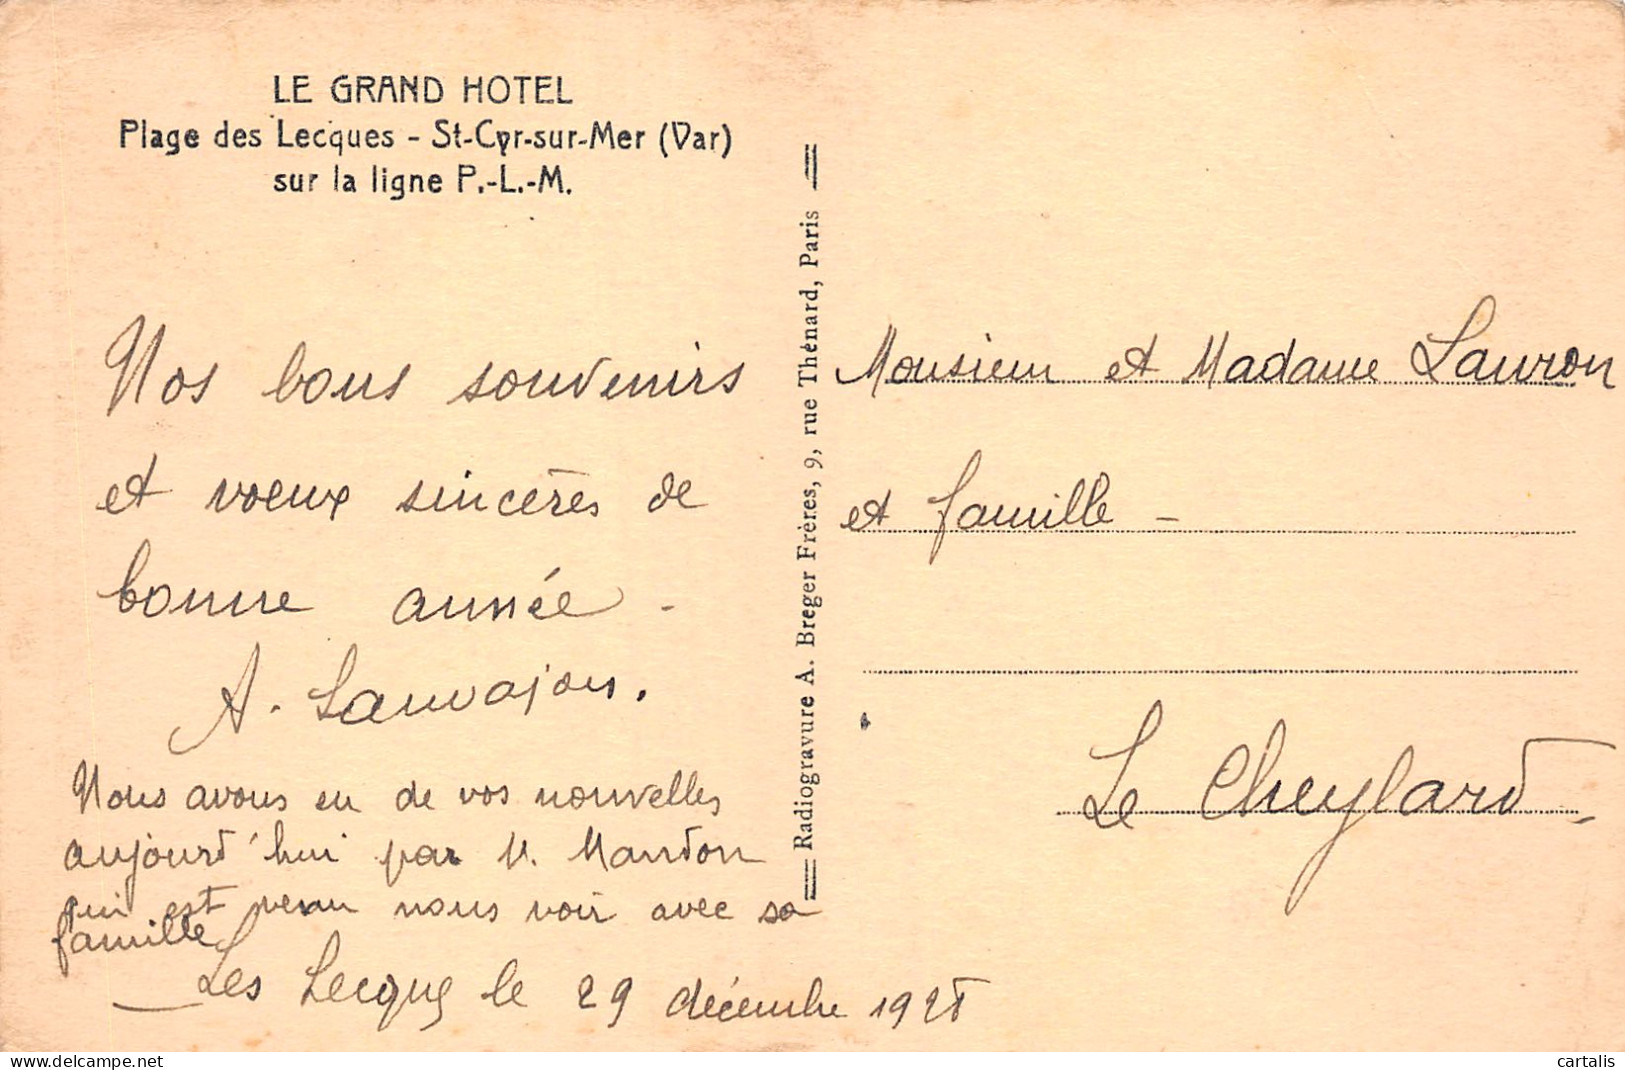 LE GRAND HOTEL
Plage des Lecques - St-Cyr-sur-Mer (Var)
sur la ligne P.-L.-M.
Nos bons souvenirs
et voeux sincères de
bonne année -
A. Sauvajon.
Nous avons eu de vos nouvelles
aujourd'hui par M. Mandon
qui est venu nous voir avec sa
famille
Les Lecques le 29 décembre 1928
Radiogravure A. Breger Frères, 9, rue Thénard, Paris
Monsieur et Madame Lauron
et famille -
Le Cheylard -
www.delcampe.net
cartalis